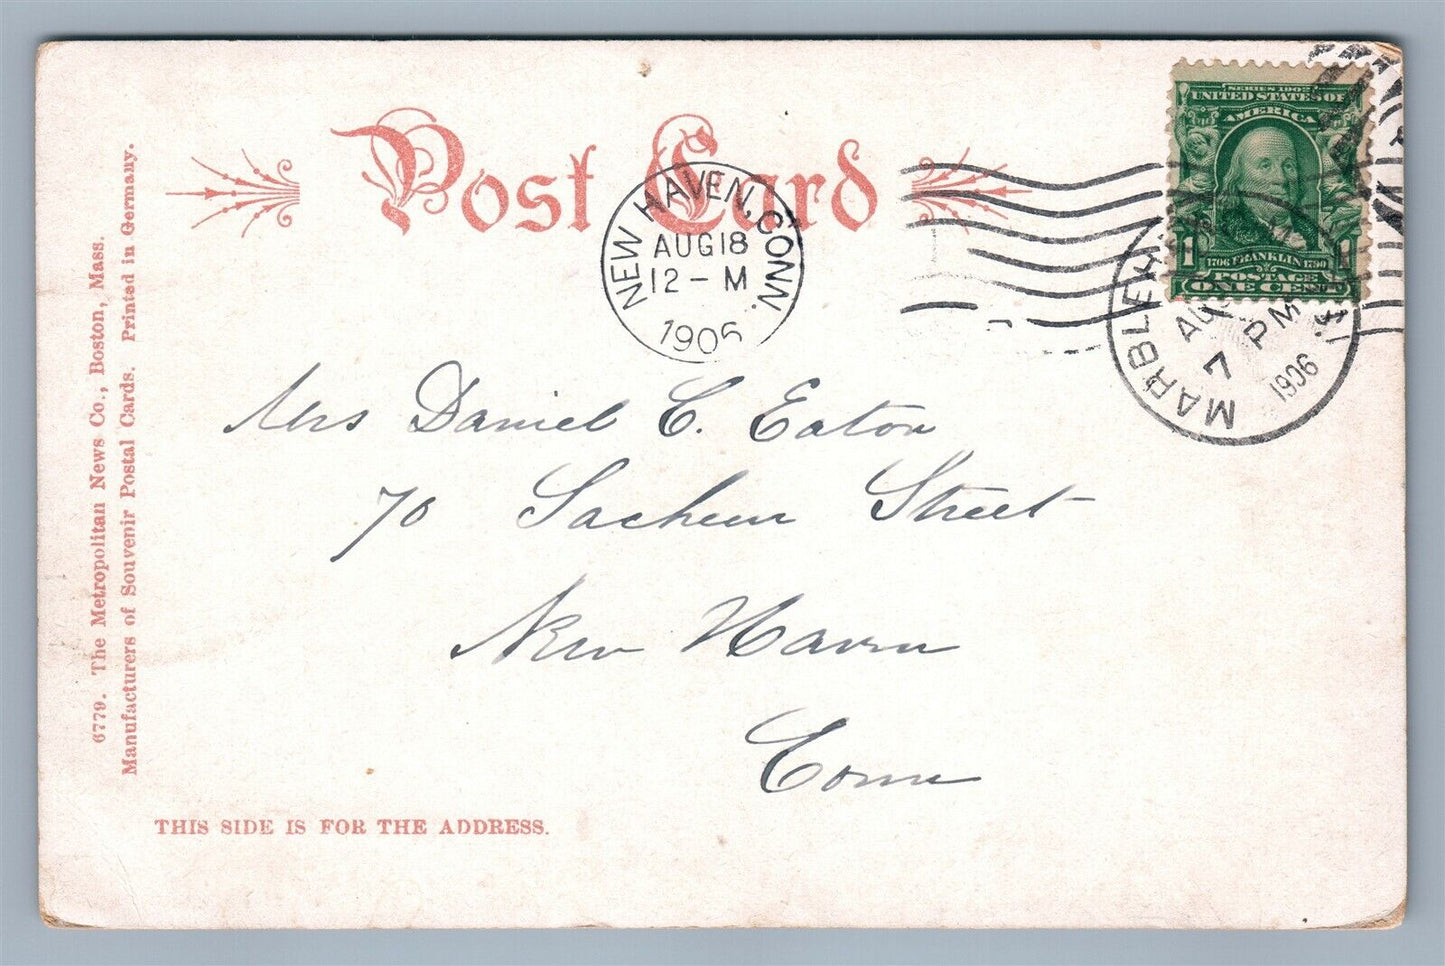 Post Card
SERIES 1902
UNITED STATES OF
AMERICA
1 1
1706 FRANKLIN 1790
POSTAGE
ONE CENT
NEW HAVEN, CONN.
AUG 18
12 - M
1906
MARBLEH
AUG
7 PM
1906
Mrs Daniel C. Eaton
70 Sachem Street
New Haven
Conn
THIS SIDE IS FOR THE ADDRESS.
6779. The Metropolitan News Co., Boston, Mass.
Manufacturers of Souvenir Postal Cards. Printed in Germany.